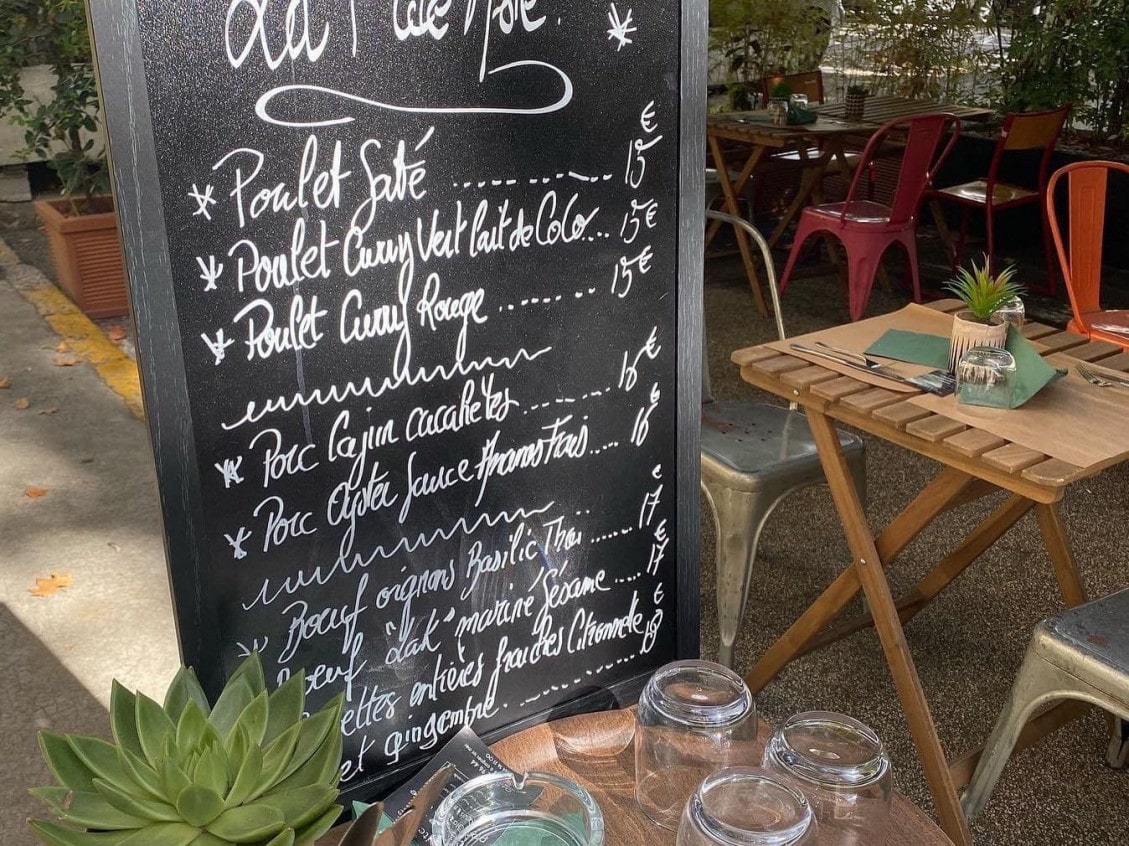 * Poulet Saté ............ 15€
* Poulet Curry Vert Lait de Coco... 15€
* Poulet Curry Rouge ........ 15€
* Porc Cajun cacahetes ........ 16€
* Porc Oyster Sauce Ananas Frais..... 16€
* Boeuf oignons Basilic Thai ...... 17€
boeuf "Lak" mariné Sésame ..... 17€
ettes entières fraiches Citronnelle
et gingembre. ........ 18€